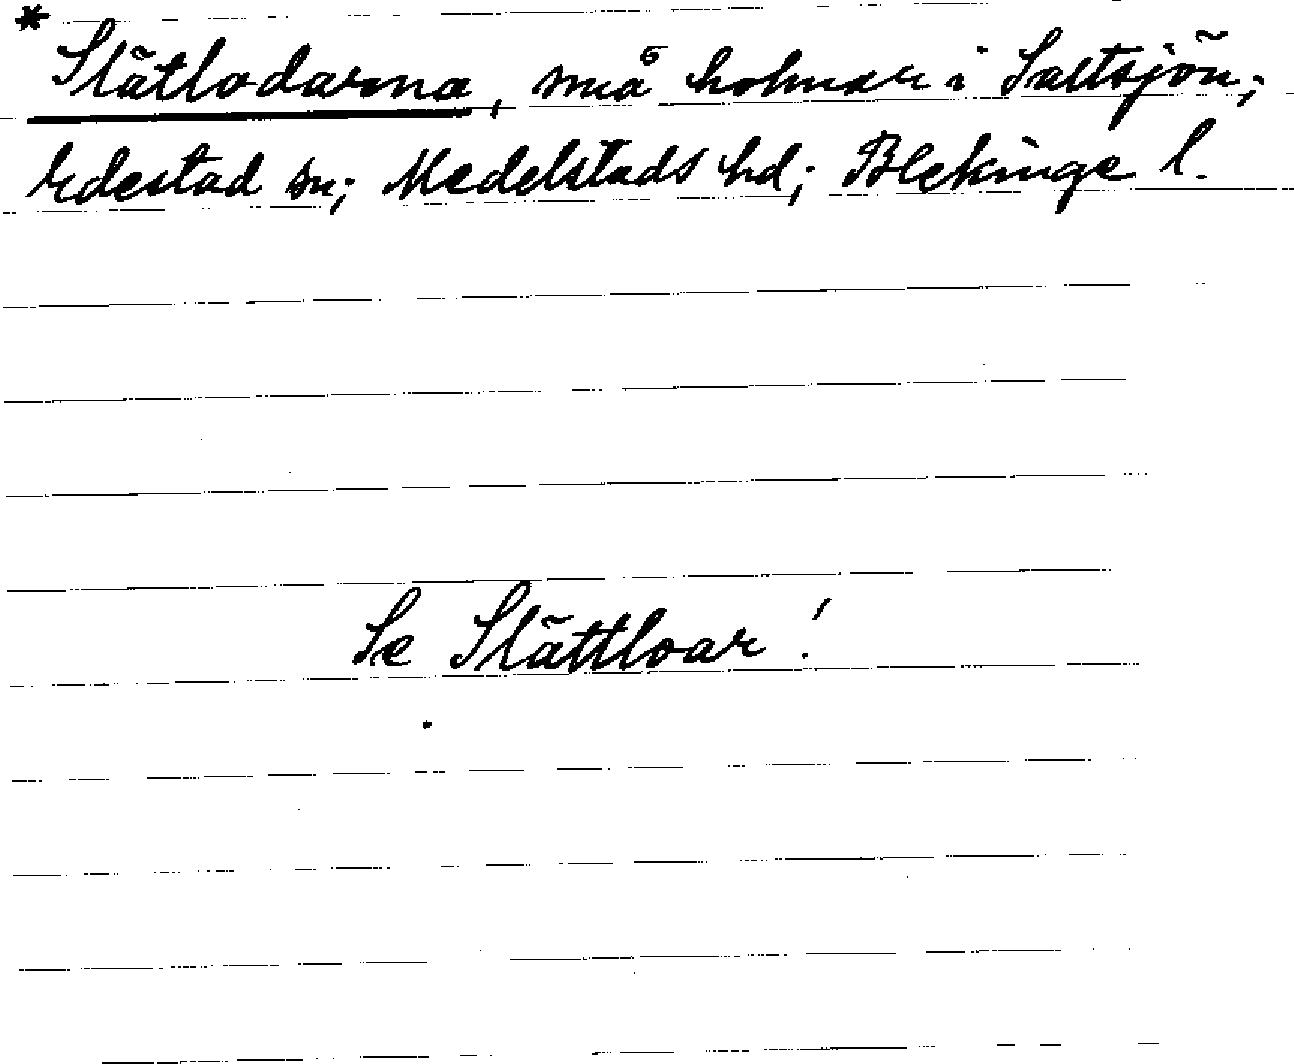 * Slätlodarna, små holmar i Saltsjön;
Edestad sn; Medelstads hd; Blekinge l.
Se Slättloar!